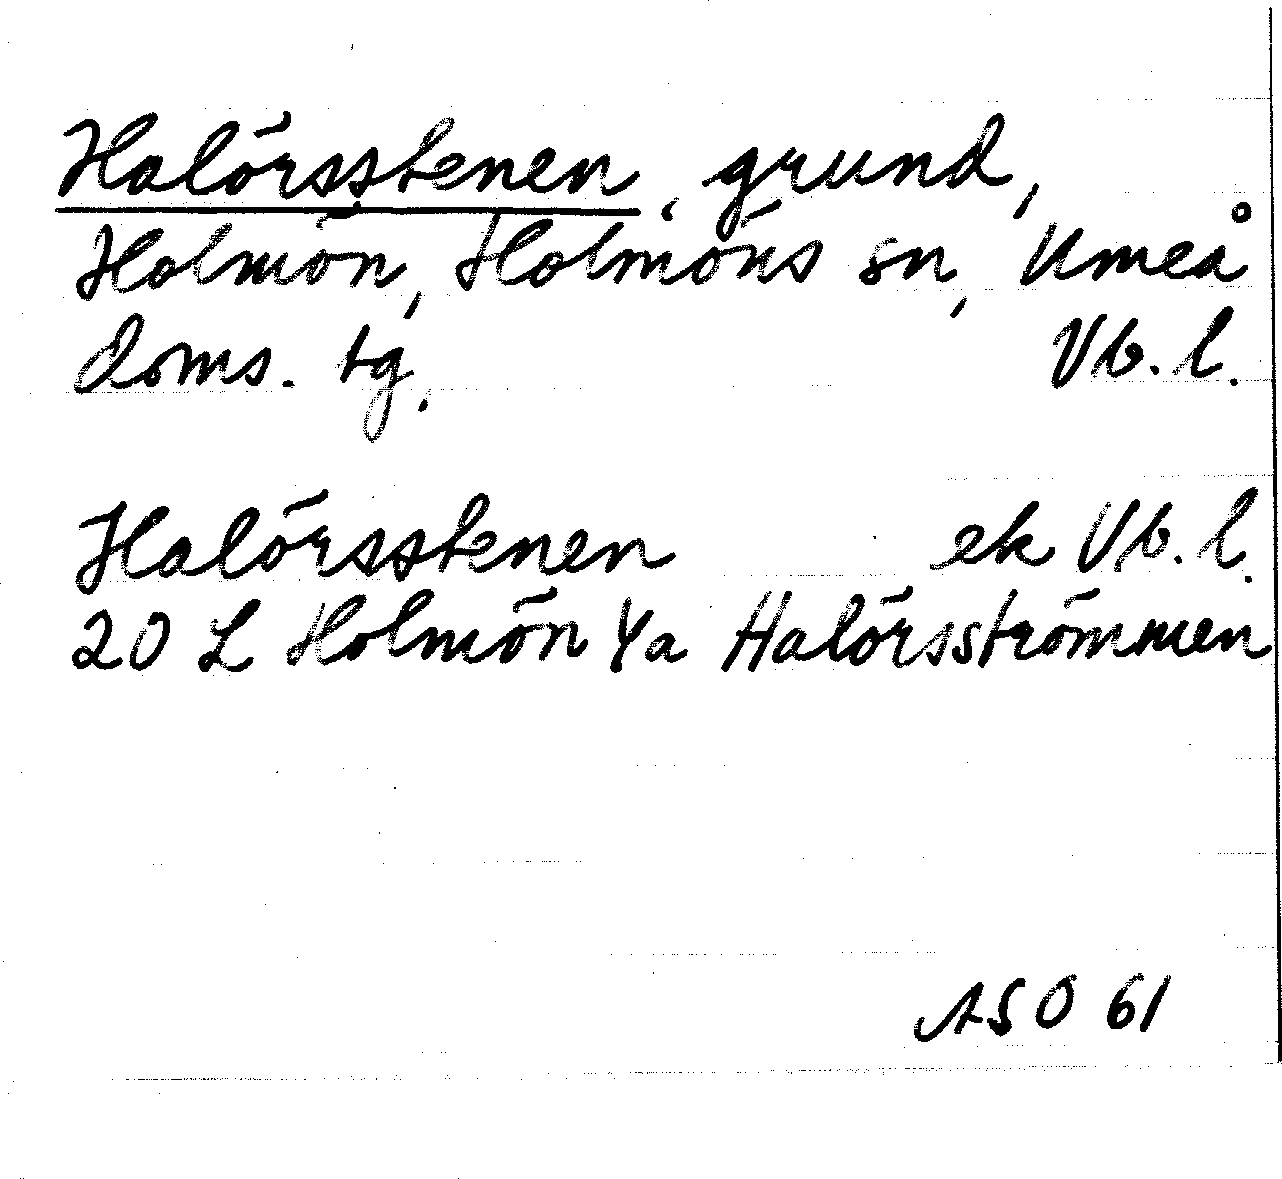 Halörsstenen, grund,
Holmön, Holmöns sn, Umeå
doms. tg. Vb. l.
Halörsstenen ek Vb. l.
20 L Holmön Ya Halörsströmmen
ASO 61